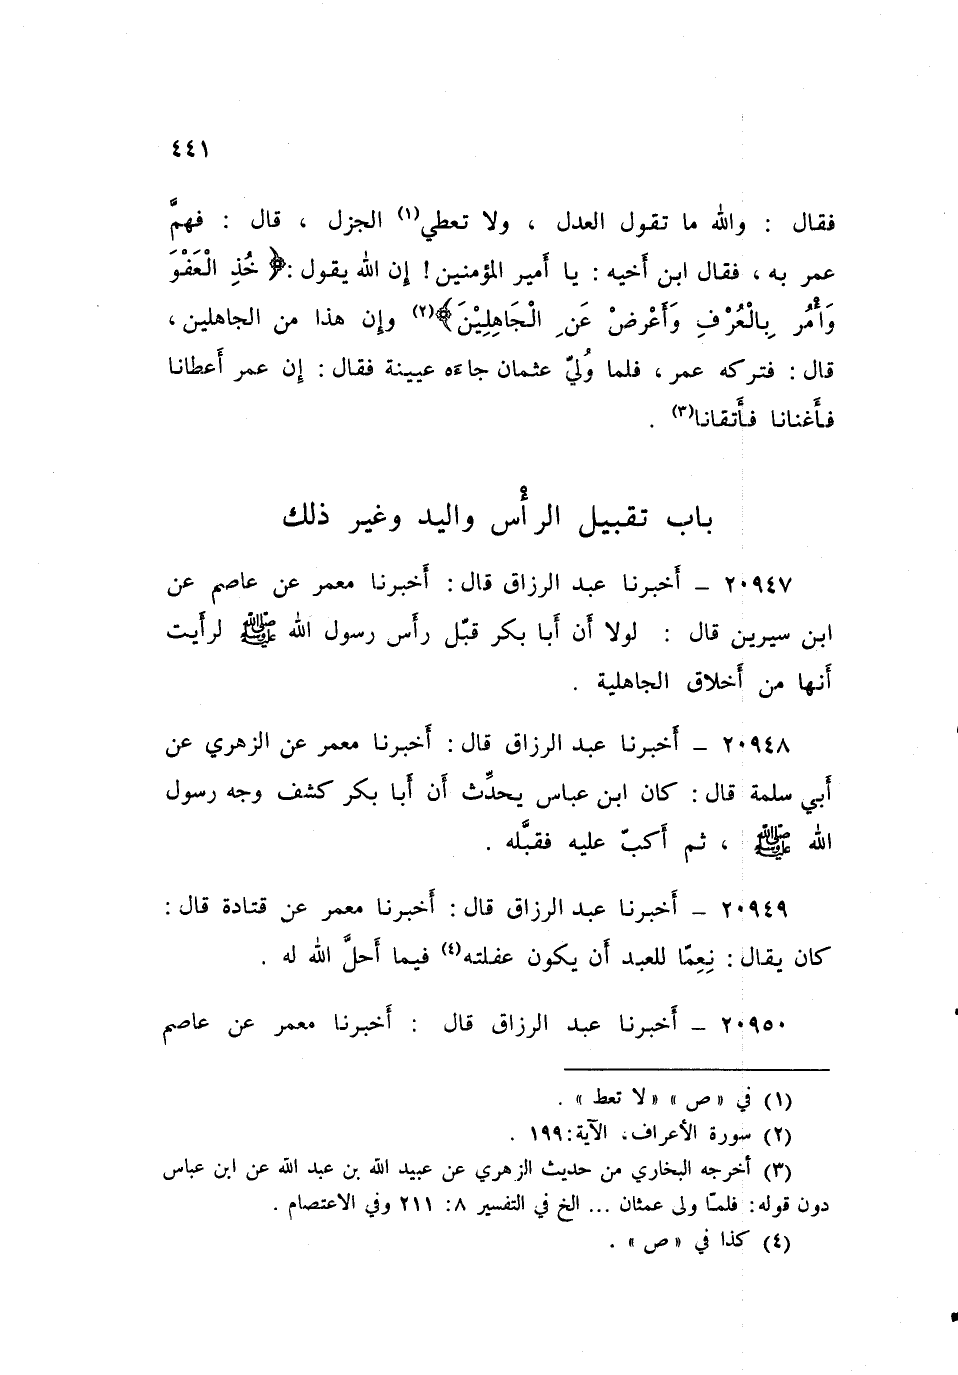 ٤٤١
فقال : والله ما تقول العدل ، ولا تعطي(١) الجزل ، قال : فهمَّ
عمر به ، فقال ابن أخيه : يا أمير المؤمنين ! إن الله يقول : ﴿ خُذِ الْعَفْوَ
وَأْمُر بِالْعُرْفِ وَأَعْرِضْ عَنِ الْجَاهِلِيْنَ ﴾(٢) وإن هذا من الجاهلين ،
قال : فتركه عمر ، فلما وُليّ عثمان جاءه عيينة فقال : إن عمر أعطانا
فأغنانا فأتقانا(٣) .
باب تقبيل الرأس واليد وغير ذلك
٢٠٩٤٧ – أخبرنا عبد الرزاق قال : أخبرنا معمر عن عاصم عن
ابن سيرين قال : لولا أن أبا بكر قبّل رأس رسول الله ﷺ لرأيت
أنها من أخلاق الجاهلية .
٢٠٩٤٨ – أخبرنا عبد الرزاق قال : أخبرنا معمر عن الزهري عن
أبي سلمة قال : كان ابن عباس يحدِّث أن أبا بكر كشف وجه رسول
الله ﷺ ، ثم أكبّ عليه فقبَّله .
٢٠٩٤٩ – أخبرنا عبد الرزاق قال : أخبرنا معمر عن قتادة قال :
كان يقال : نِعِمّا للعبد أن يكون عفلته(٤) فيما أحلَّ الله له .
٢٠٩٥٠ – أخبرنا عبد الرزاق قال : أخبرنا معمر عن عاصم
(١) في « ص » « لا تعط » .
(٢) سورة الأعراف، الآية: ١٩٩ .
(٣) أخرجه البخاري من حديث الزهري عن عبيد الله بن عبد الله عن ابن عباس
دون قوله : فلمّا ولى عمثان ... الخ في التفسير ٨: ٢١١ وفي الاعتصام .
(٤) كذا في « ص » .